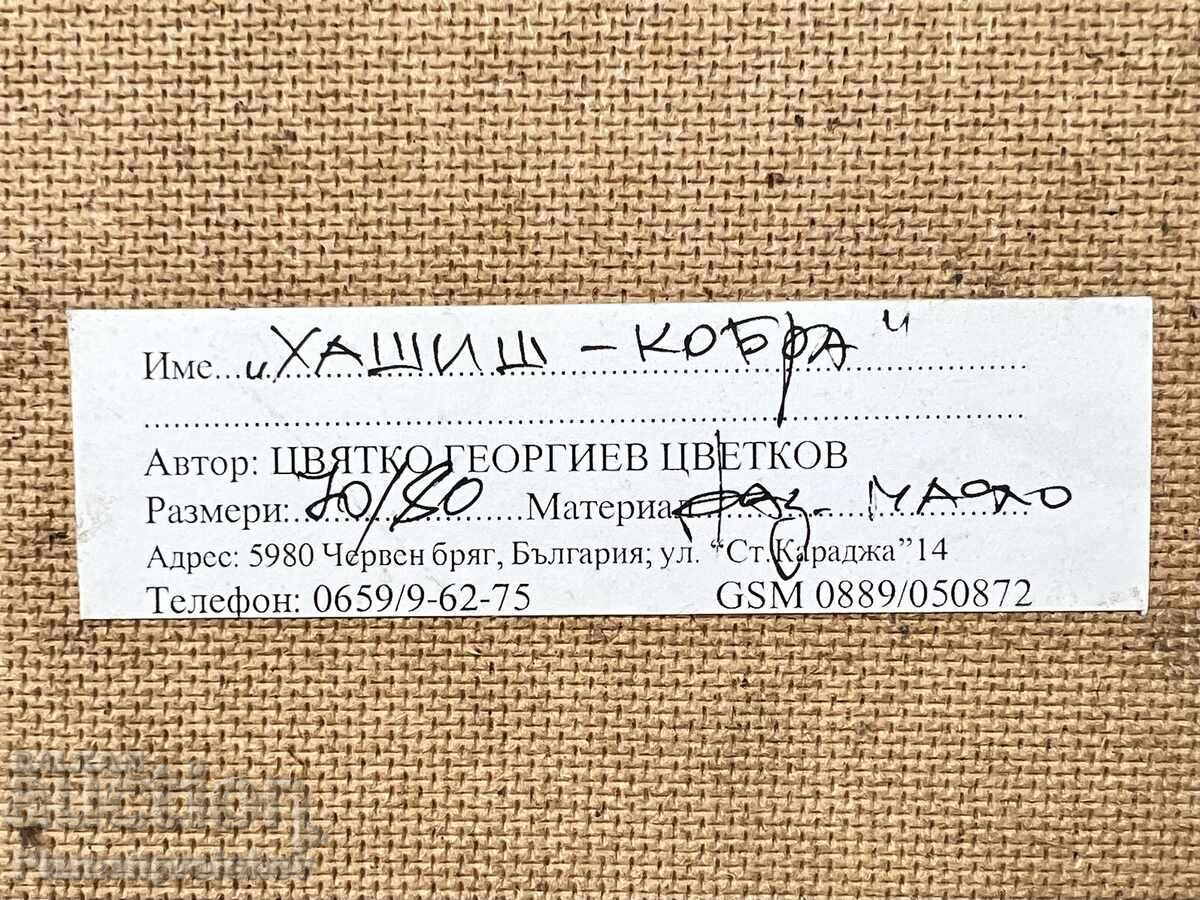 Име... „ХАШИШ - КОБРА"
Автор: ЦВЯТКО ГЕОРГИЕВ ЦВЕТКОВ
Размери: 70/80 Материал фаз. МАСЛО
Адрес: 5980 Червен бряг, България; ул. “Ст. Караджа”14
Телефон: 0659/9-62-75 GSM 0889/050872
BALKAN
auction